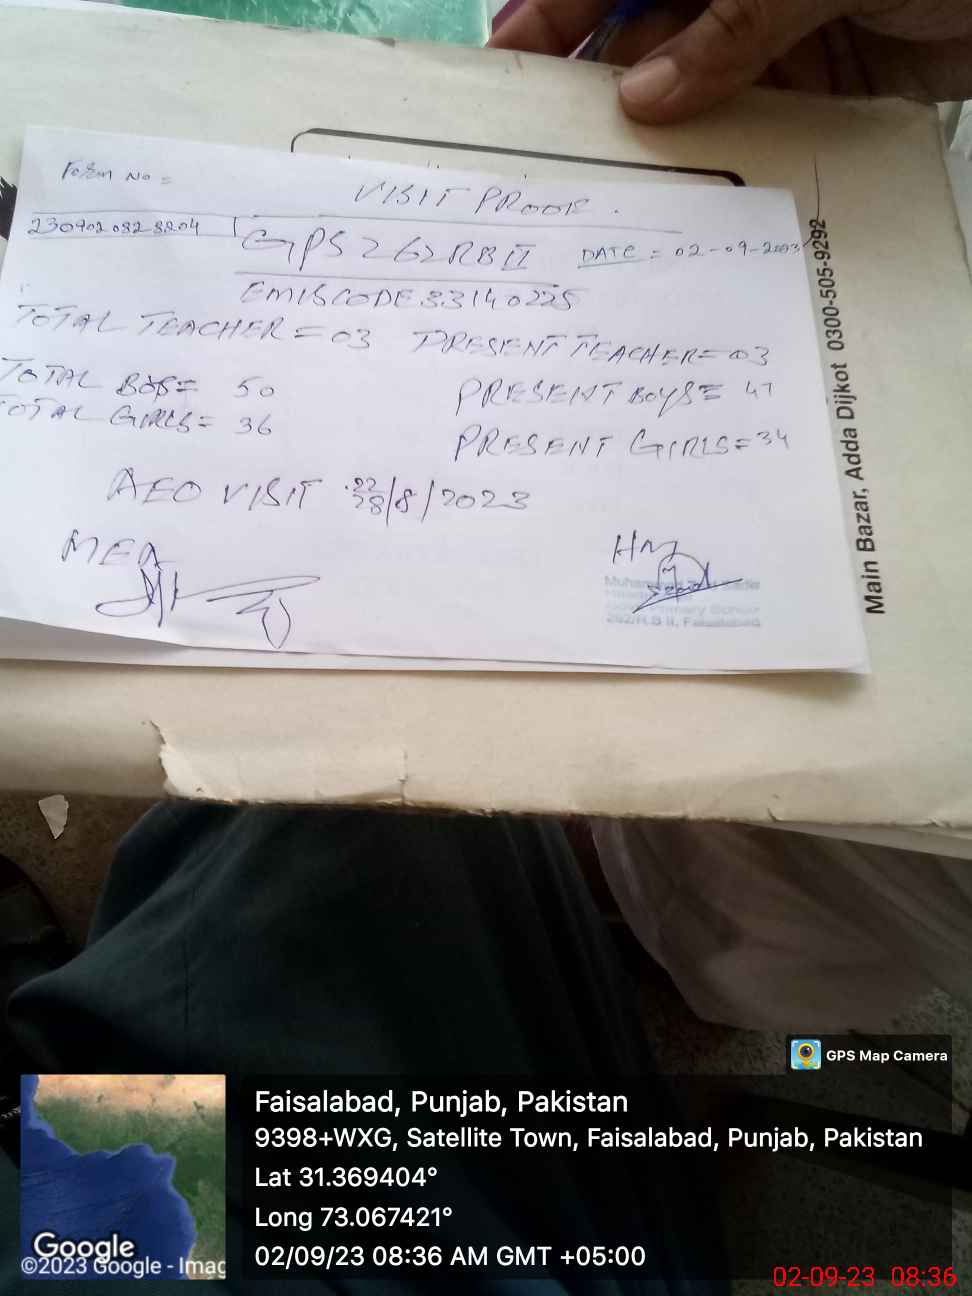 Form No =
VISIT PROOF.
230902 082 8204
GPS 262 RB II
DATE = 02-09-2003
EMISCODE 33140225
TOTAL TEACHER = 03 PRESENT TEACHER = 03
TOTAL BOS = 50
PRESENT BOYS = 47
TOTAL GIRLS = 36
PRESENT GIRLS = 34
AEO VISIT 22/28/8/2023
MEA
HM
Primary School
262/R.B II, Faisalabad
Main Bazar, Adda Dijkot 0300-505-9292
GPS Map Camera
Faisalabad, Punjab, Pakistan
9398+WXG, Satellite Town, Faisalabad, Punjab, Pakistan
Lat 31.369404°
Long 73.067421°
02/09/23 08:36 AM GMT +05:00
Google
©2023 Google - Imag
02-09-23 08:36